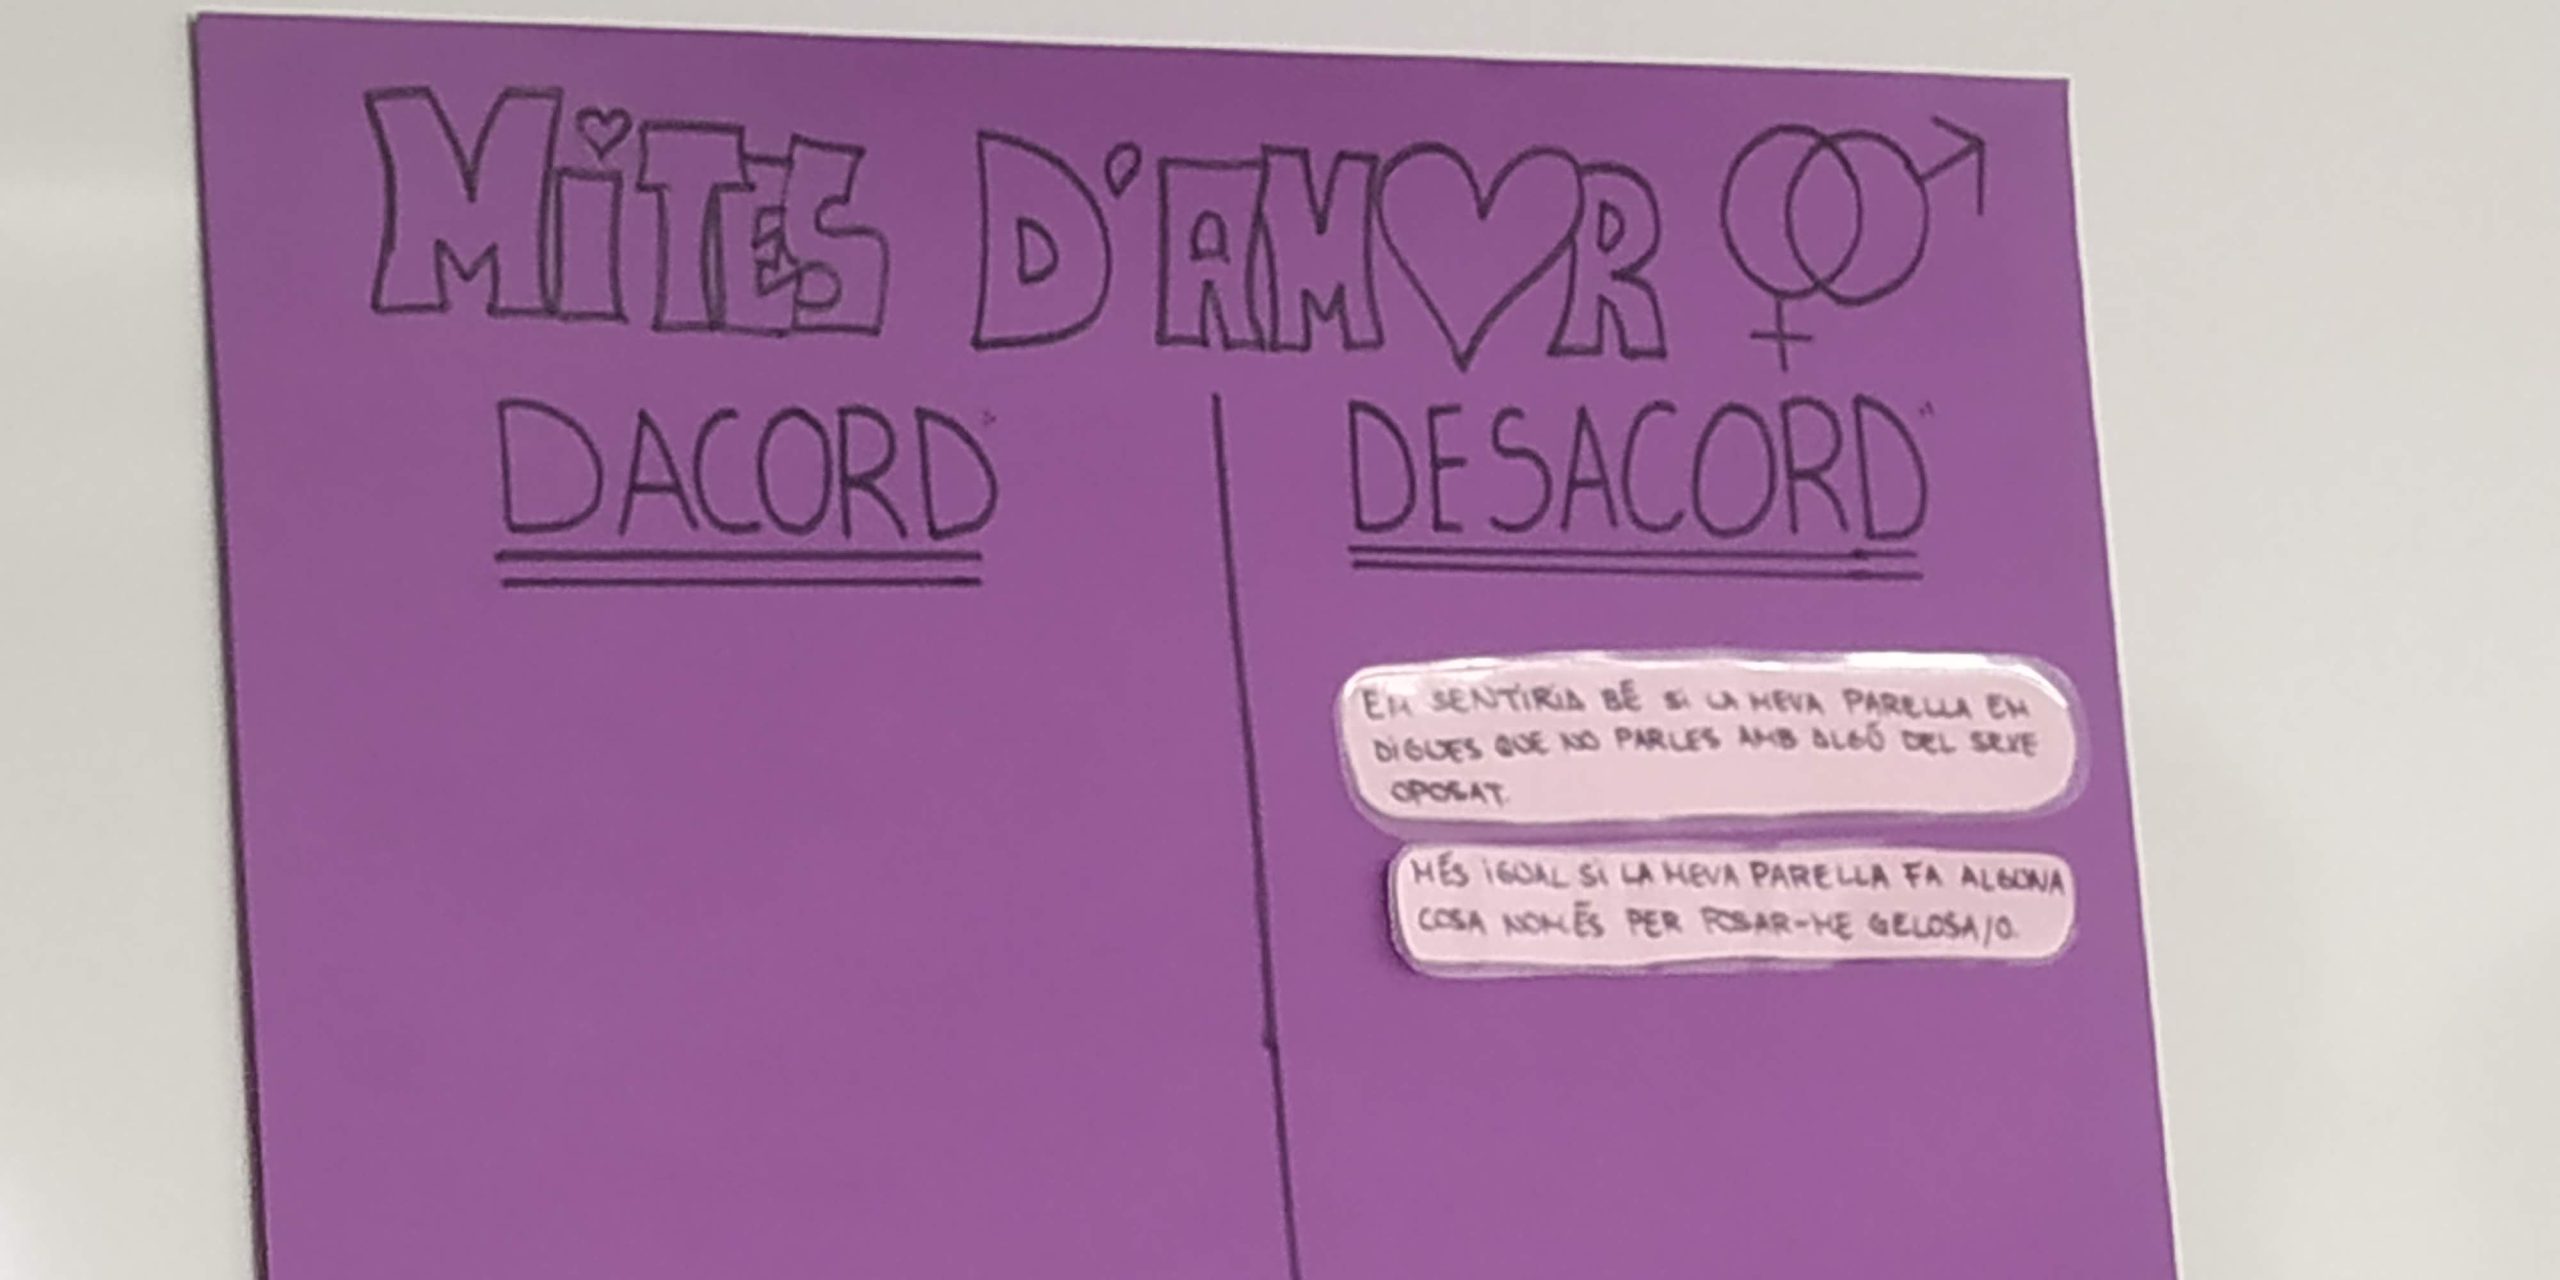 MiTES D'AMOR
DACORD
DESACORD
EM SENTIRIA BÉ Si LA MEVA PARELLA EM
DIGUES QUE NO PARLES AMB ALGÚ DEL SEXE
OPOSAT.
MÉS IGUAL SI LA MEVA PARELLA FA ALGUNA
COSA NOMÉS PER POSAR-ME GELOSA/O.